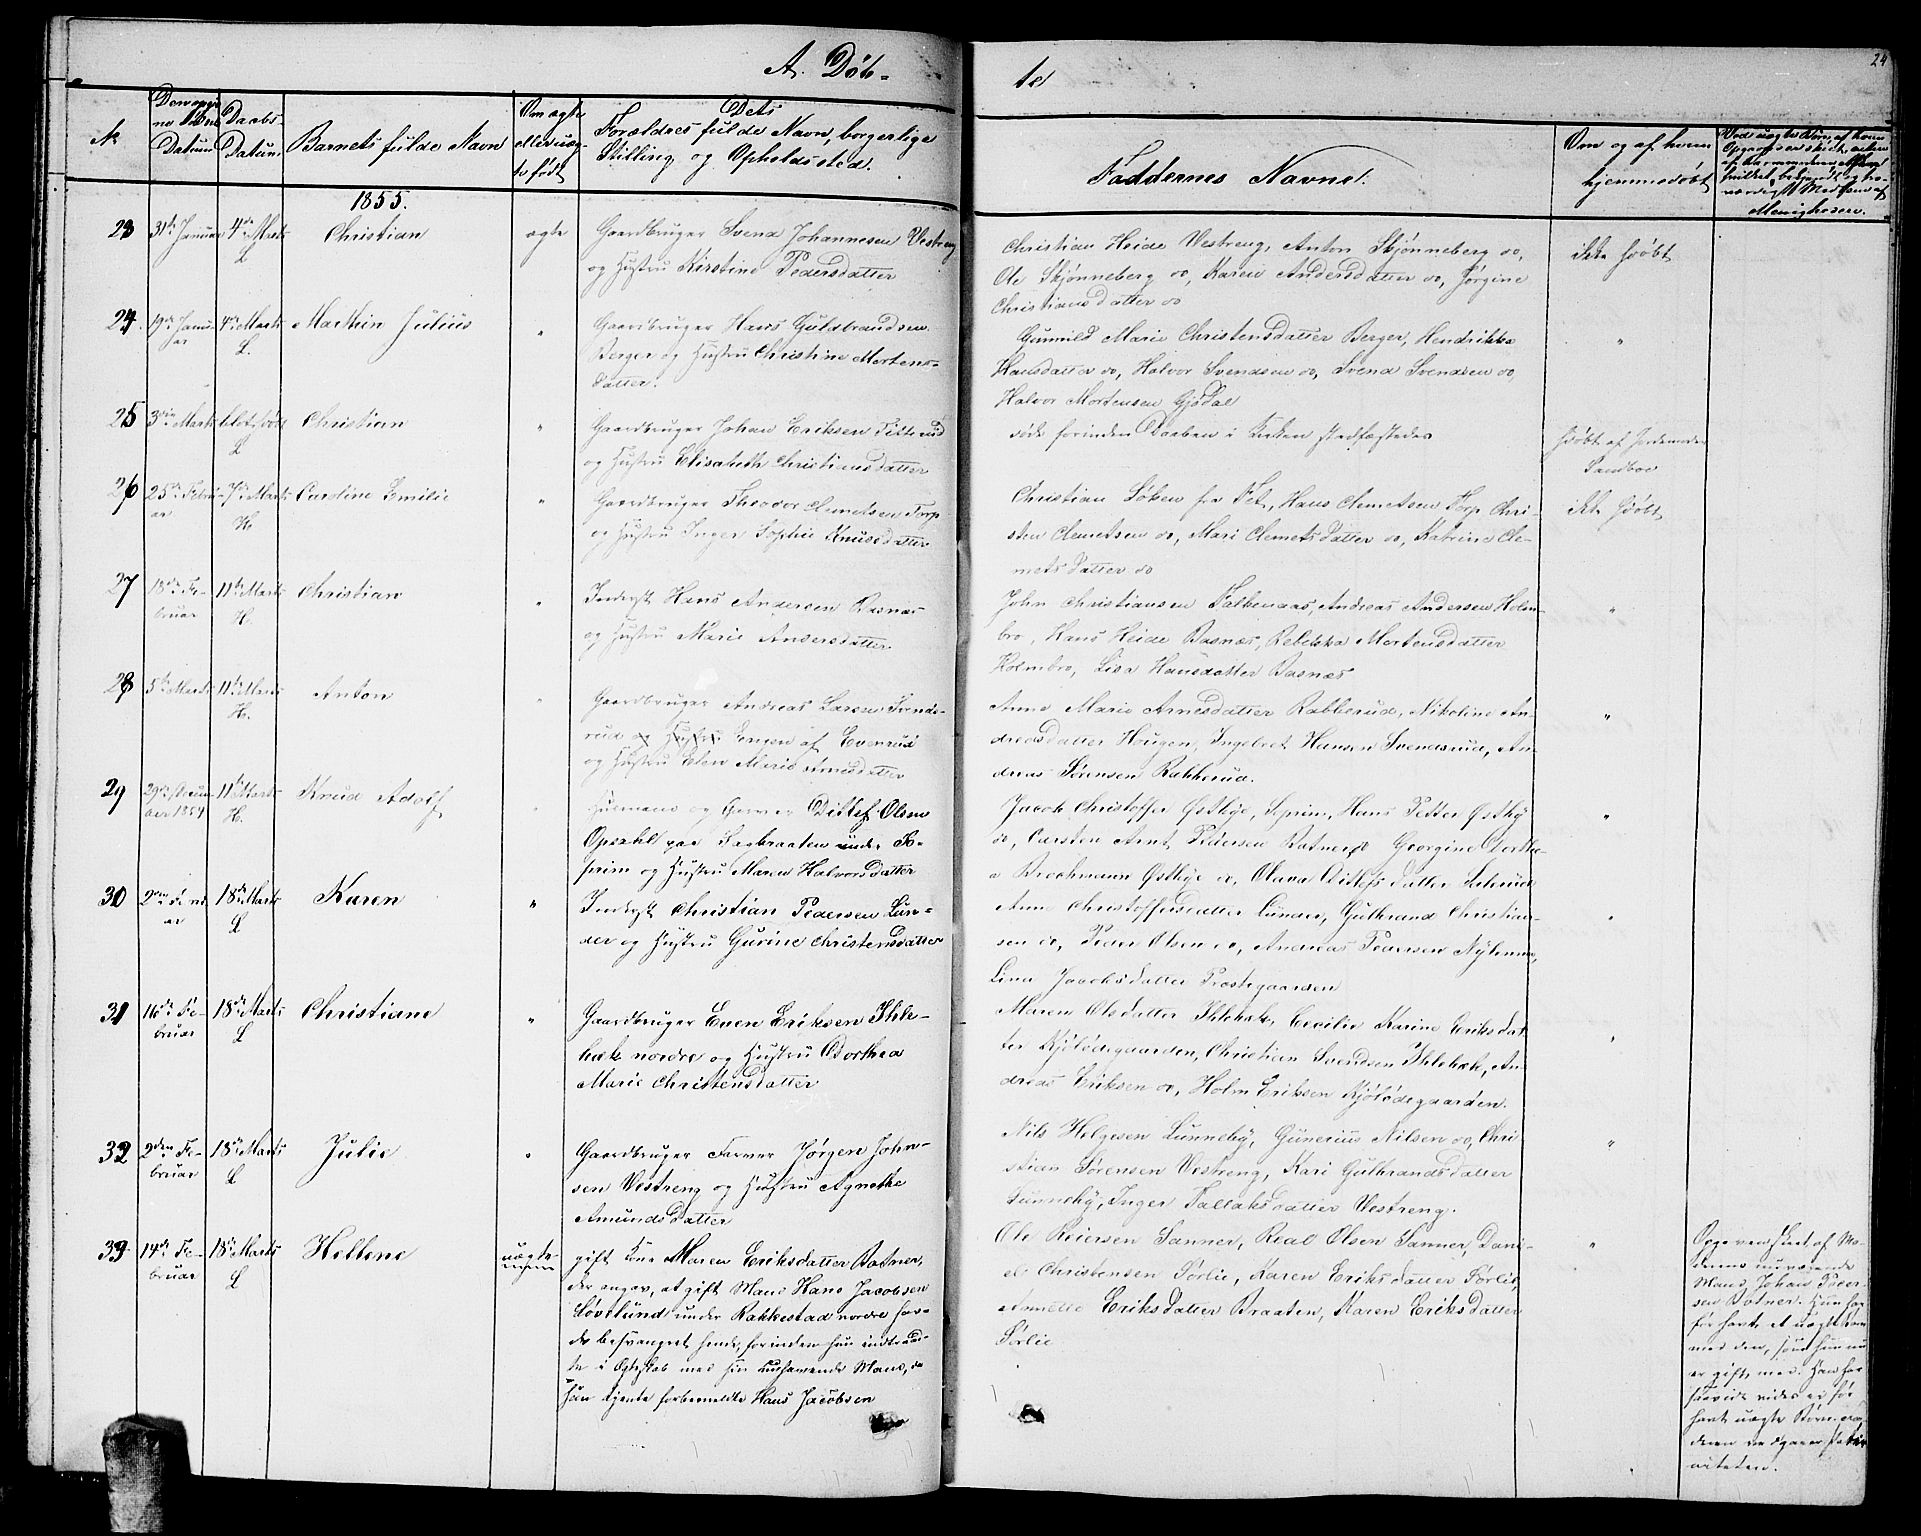 24
A. Døb-
te
№
Datum
Daabs-
Datum
Barnets fulde Navn
Om ægte
eller uæg-
te født
Dets
Forældres fulde Navn, borgerlige
Stilling og Opholdssted.
Faddernes Navne.
Om og af hvem
hjemmedøbt
1855.
23 31te Januar 4de Marts L Christian ægte
Gaardbruger Svend Johannesen Vestreng
og Hustru Kirstine Pedersdatter
Christian Heide Vestreng, Anton Skjønneberg do,
Ole Skjønneberg do, Karen Andersdatter do, Jørgine
Christiansdatter do
ikke hjdøbt
24. 19de Janu-
ar 4de Marts L. Marthin Julius "
Gaardbruger Hans Guldbrandsen
Berger og Hustru Christine Mortens-
datter.
Gunnild Marie Christensdatter Berger, Hendrikka
Hansdatter do, Halvor Svendsen do, Svend Svendsen do,
Halvor Mortensen Gjødal
"
25 3die Marts L Christian "
Gaardbruger Johan Eriksen
og Hustru Elisabeth Christiansdatter
døde forinden Daaben i Kirken stadfæstedes
hjdøbt af Jordemoder
Sandboe
26 25de Febru-
ar 7de Marts H. Caroline Emilie "
Gaardbruger Theodor Clemetsen Torp
og Hustru Inger Sophie Knudsdatter
Christian Løken fra Fet, Hans Clemetsen Torp Chri-
sten Clemetsen do, Mari Clemetsdatter do, Katrine Cle-
metsdatter do
ikke hjdøbt
27 18de Fe-
bruar 11te Marts H. Christian "
Inderst Hans Andersen Basnæs
og Hustru Marie Andersdatter
John Christiansen Falkenaas, Andreas Andersen Holm-
bro, Hans Heide Basnæs, Rebekka Mortensdatter
Holmbro, Lisa Hansdatter Basnæs
"
28 5te Marts 11te Marts H. Anton "
Gaardbruger Andreas Larsen Svends-
rud og Hustru Engen af Evenrud
og Hustru Elen Marie Arnesdatter
Anne Marie Arnesdatter Rabberud, Nikoline An-
dreasdatter Hougen, Ingebret Hansen Svendsrud, An-
dreas Sørensen Rakkerud.
"
29 11te Marts H. Knud Adolf "
Huusmand og Garver Ditlef Olsen
Opsahl paa Sagbraaten under So-
prim og Hustru Maren Halvorsdatter
Jacob Christoffer Østbye, Soprim, Hans Petter Østby
do, Carsten Arnt Pedersen Ratnerø Georgine Dorthe-
a Brochmann Østbye do, Olava Ditlefsdatter
"
30 18de Marts L Karen "
Inderst Christian Pedersen Lun-
der og Hustru Gurine Christensdatter
Anne Christoffersdatter Lunder, Gulbrand Christian-
sen do, Peder Olsen do, Andreas Pedersen Nylænne,
Lina Jacobsdatter Præstegaarden
"
31 16de Fe-
bruar 18de Marts L Christiane "
Gaardbruger Even Eriksen Ihle-
bæk nordre og Hustru Dorthea
Marie Christensdatter
Maren Olsdatter Ihlebæk, Cecilie Karine Eriksdat-
ter Kjølødegaarden, Christian Svendsen Ihlebæk, An-
dreas Eriksen do, Holm Eriksen Kjølødegaarden.
"
32 2den Fe-
bruar 18de Marts L Julie "
Gaardbruger Farver Jørgen John-
sen Vestreng og Hustru Agnethe
Amundsdatter
Nils Helgesen Lunneby, Gunerius Nilsen do, Chri-
stian Sørensen Vestreng, Kari Gulbrandsdatter
Lunneby, Inger Tallaksdatter Vestreng.
"
33 14de Fe-
bruar 18de Marts L Hellene uægte
gift Kone Maren Eriksdatter Botner,
der angav, at gift Mand Hans Jacobsen
Løvlund under Rakkestad nordre hav-
de besvangret hende, forinden hun indtraad-
te i Ægteskab med sin nuhavende Mand, da
hun tjente forbemeldte Hans Jacobsen
Ole Reiersen Sanner, Real Olsen Sanner, Dani-
el Christensen Sørlie, Karen Eriksdatter Sørlie,
Annette Eriksdatter Braaten, Karen Eriksdatter
Sørlie
"
Opgaven skeet af Mo-
derens nuværende
Mand, Johan Peder-
sen Botner. Hun har
før havt et uægte Barn
med den, som hun nu
er gift med. Han har
saavidt vides ei før
havt uægte Børn